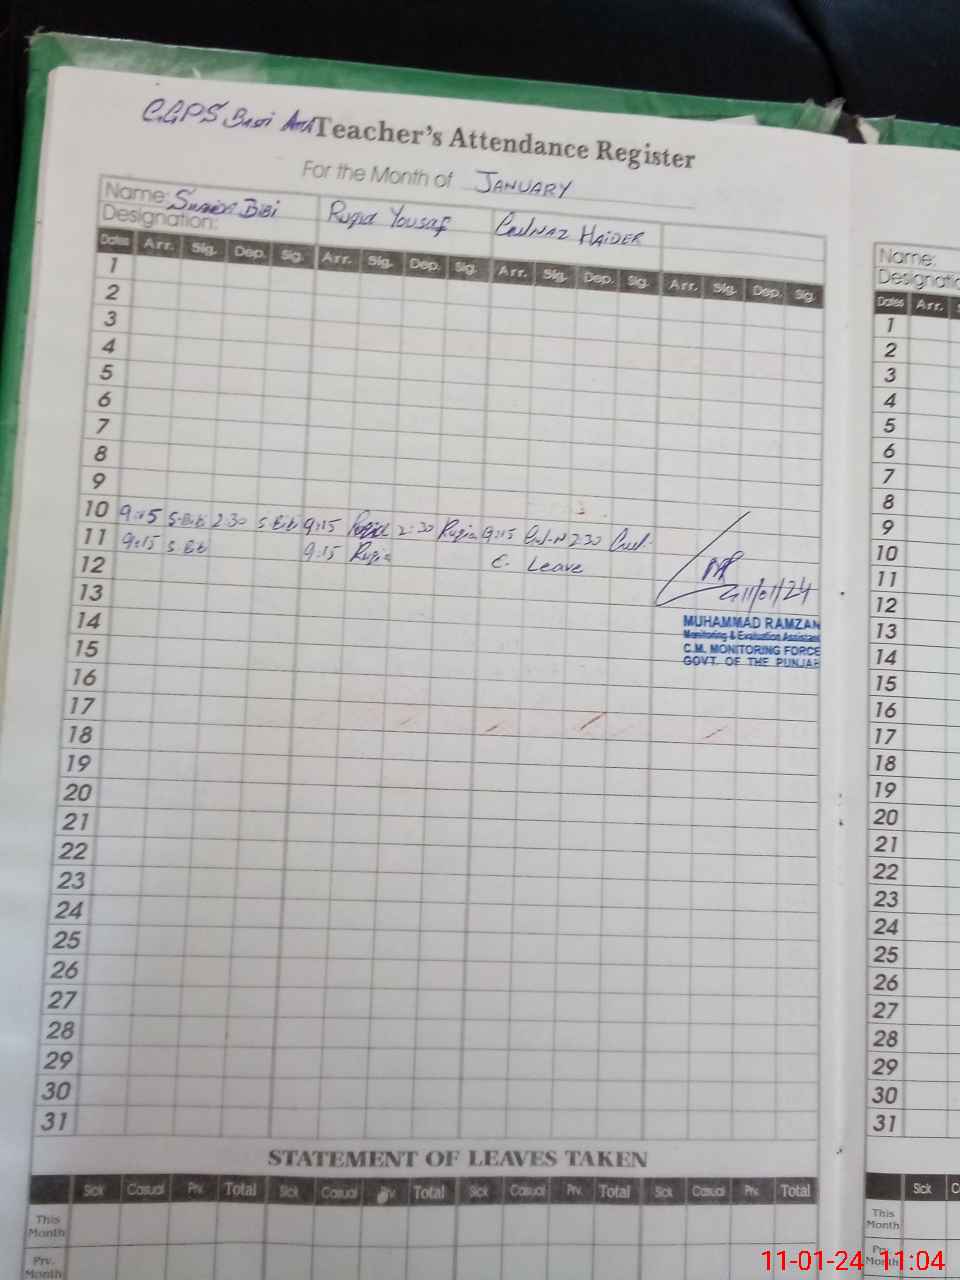 G.G.P.S Basti Teacher's Attendance Register
For the Month of JANUARY
Name: Bibi Ruqia Yousaf Gulnaz HAIDER
Designation:
Dates Arr. Sig. Dep. Sig. Arr. Sig. Dep. Sig. Arr. Sig. Dep. Sig. Arr. Sig. Dep. Sig.
1
2
3
4
5
6
7
8
9
10 9:15 S.Bibi 2:30 S Bibi 9:15 Ruqia 2:30 Ruqia 9:15 Gul-N 2:30 Gul.
11 9:15 S Bibi 9:15 Ruqia C. Leave
12
11/01/24
13
14
MUHAMMAD RAMZAN
Monitoring & Evaluation Assistant
15
C.M. MONITORING FORCE
GOVT. OF THE PUNJAB
16
17
18
19
20
21
22
23
24
25
26
27
28
29
30
31
STATEMENT OF LEAVES TAKEN
Sick Casual Prv. Total Sick Casual Prv. Total Sick Casual Prv. Total Sick Casual Prv. Total
This
Month
Prv.
Month
Name:
Dates Arr.
1
2
3
4
5
6
7
8
9
10
11
12
13
14
15
16
17
18
19
20
21
22
23
24
25
26
27
28
29
30
31
Sick
This
Month
Prv.
Month
11-01-24 11:04